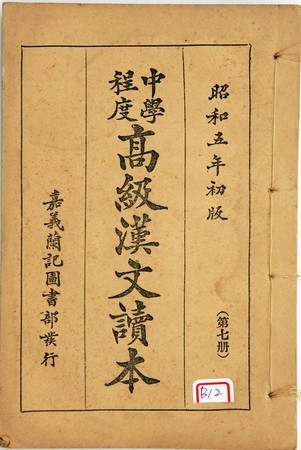 昭和五年初版
（第七册）
中學程度
高級漢文讀本
嘉義蘭記圖書部發行
B12